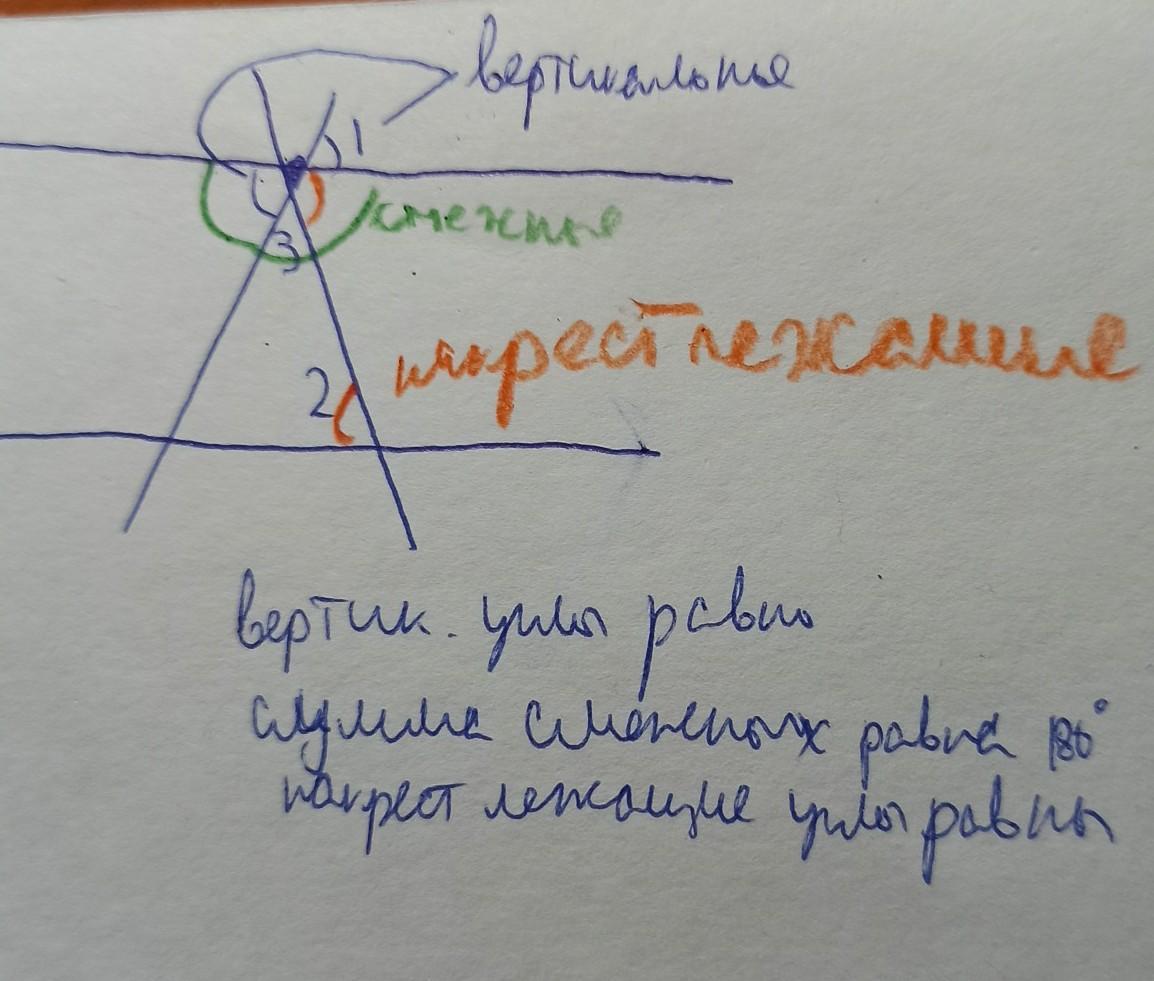 вертикальные
1
смежные
3
накрест лежащие
2
вертик. углы равны
сумма смежных равна 180°
накрест лежащие углы равны